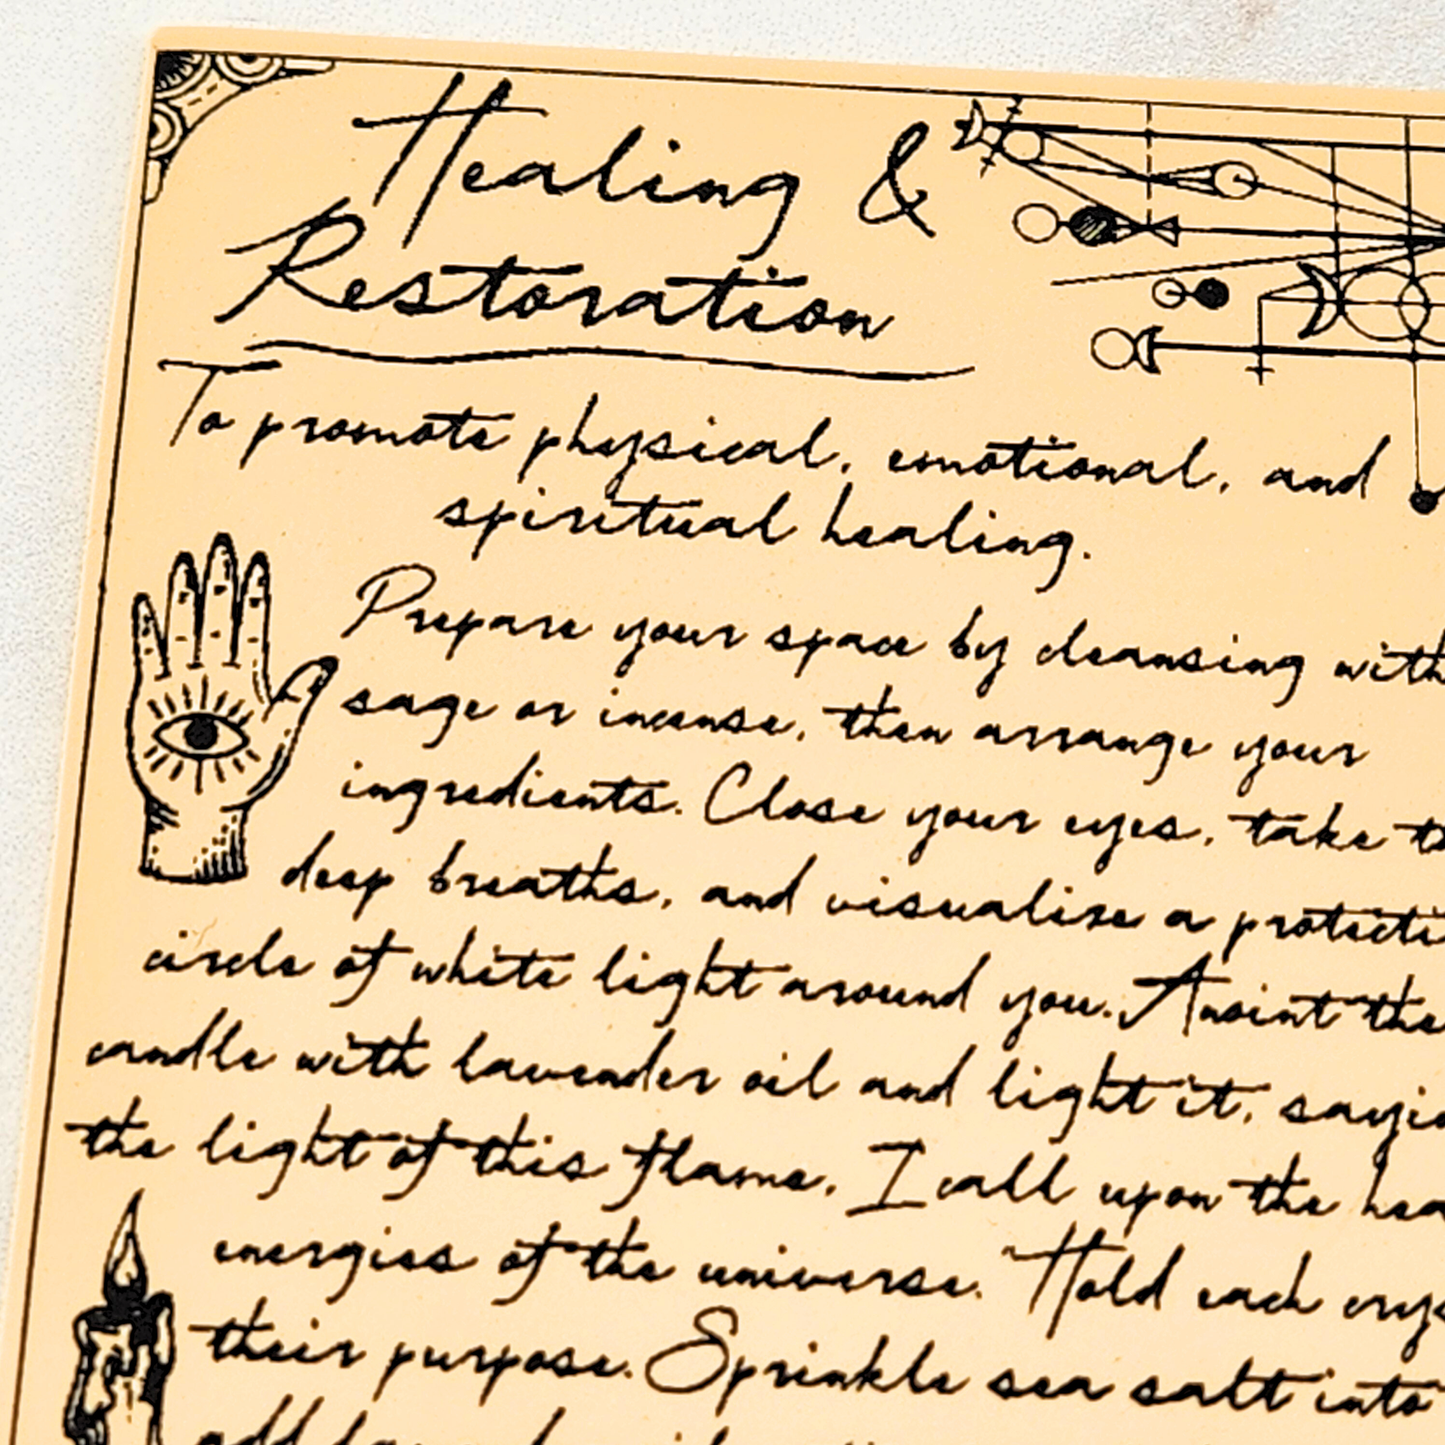 Healing &
Restoration
To promote physical, emotional, and
spiritual healing.
Prepare your space by cleansing with
sage or incense, then arrange your
ingredients. Close your eyes, take
deep breaths, and visualise a
circle of white light around you. Anoint the
candle with lavender oil and light it,
the light of this flame, I call upon the
energies of the universe. Hold each
their purpose. Sprinkle sea salt into
add